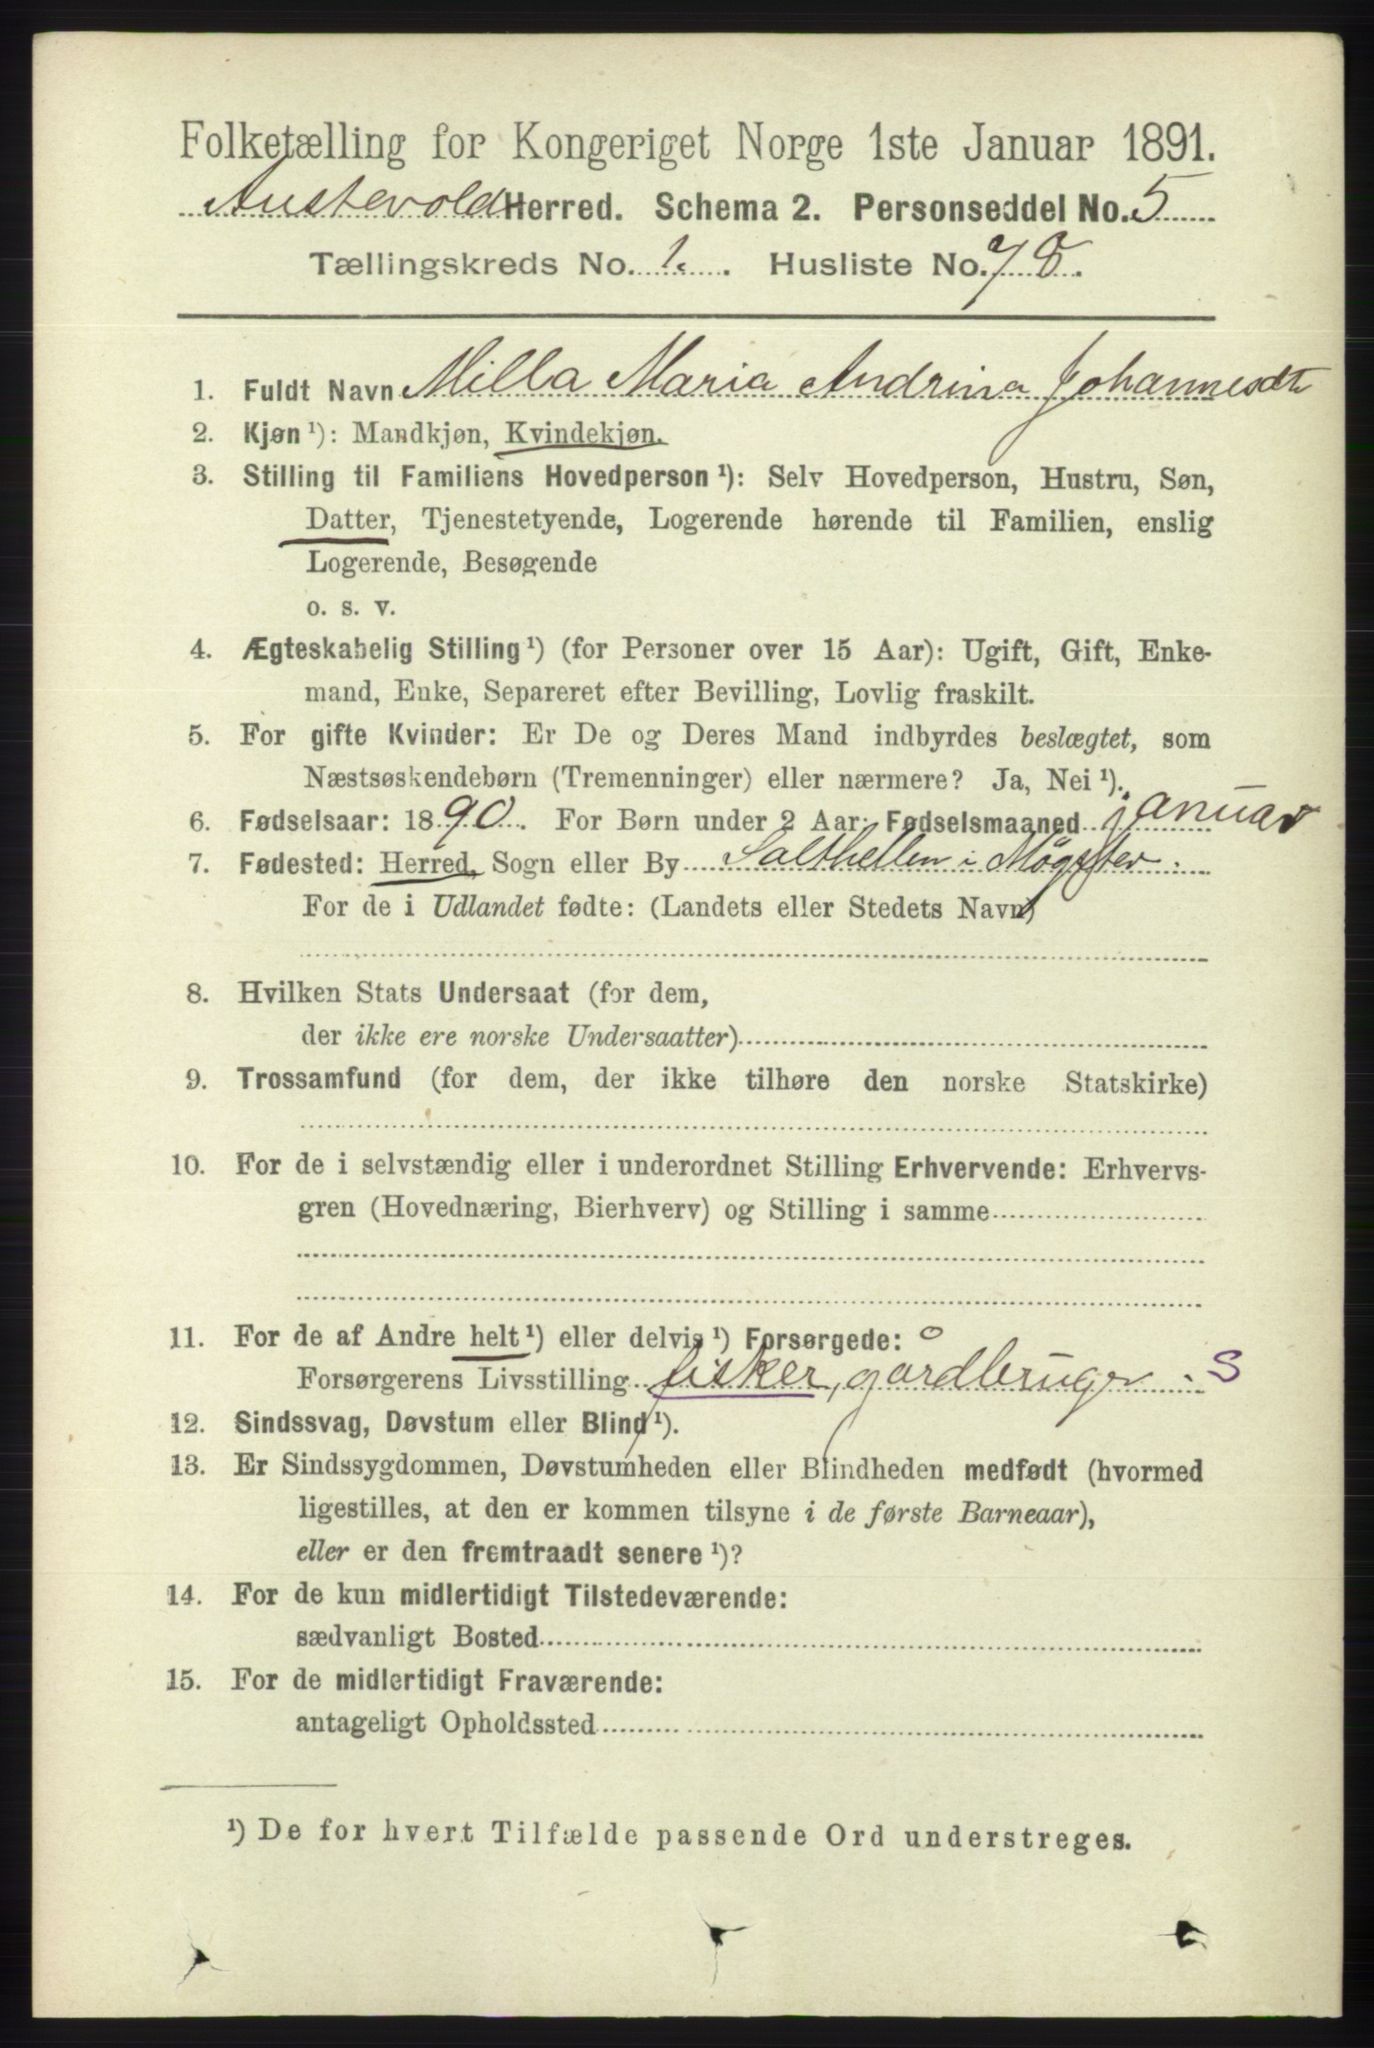 Folketælling for Kongeriget Norge 1ste Januar 1891.
Austevold Herred. Schema 2. Personseddel No. 5
Tællingskreds No. 1. Husliste No. 78.
1. Fuldt Navn Milla Maria Andrina Johannesdt
2. Kjøn ¹): Mandkjøn, Kvindekjøn.
3. Stilling til Familiens Hovedperson ¹): Selv Hovedperson, Hustru, Søn,
Datter, Tjenestetyende, Logerende hørende til Familien, enslig
Logerende, Besøgende
o. s. v.
4. Ægteskabelig Stilling ¹) (for Personer over 15 Aar): Ugift, Gift, Enke-
mand, Enke, Separeret efter Bevilling, Lovlig fraskilt.
5. For gifte Kvinder: Er De og Deres Mand indbyrdes beslægtet, som
Næstsøskendebørn (Tremenninger) eller nærmere? Ja, Nei ¹).
6. Fødselsaar: 1890. For Børn under 2 Aar: Fødselsmaaned januar
7. Fødested: Herred, Sogn eller By Salthellen i Møgster.
For de i Udlandet fødte: (Landets eller Stedets Navn)
8. Hvilken Stats Undersaat (for dem,
der ikke ere norske Undersaatter)
9. Trossamfund (for dem, der ikke tilhøre den norske Statskirke)
10. For de i selvstændig eller i underordnet Stilling Erhvervende: Erhvervs-
gren (Hovednæring, Bierhverv) og Stilling i samme
11. For de af Andre helt ¹) eller delvis ¹) Forsørgede:
Forsørgerens Livsstilling fisker, gårdbruger. S
12. Sindssvag, Døvstum eller Blind ¹).
13. Er Sindssygdommen, Døvstumheden eller Blindheden medfødt (hvormed
ligestilles, at den er kommen tilsyne i de første Barneaar),
eller er den fremtraadt senere ¹)?
14. For de kun midlertidigt Tilstedeværende:
sædvanligt Bosted
15. For de midlertidigt Fraværende:
antageligt Opholdssted
¹) De for hvert Tilfælde passende Ord understreges.